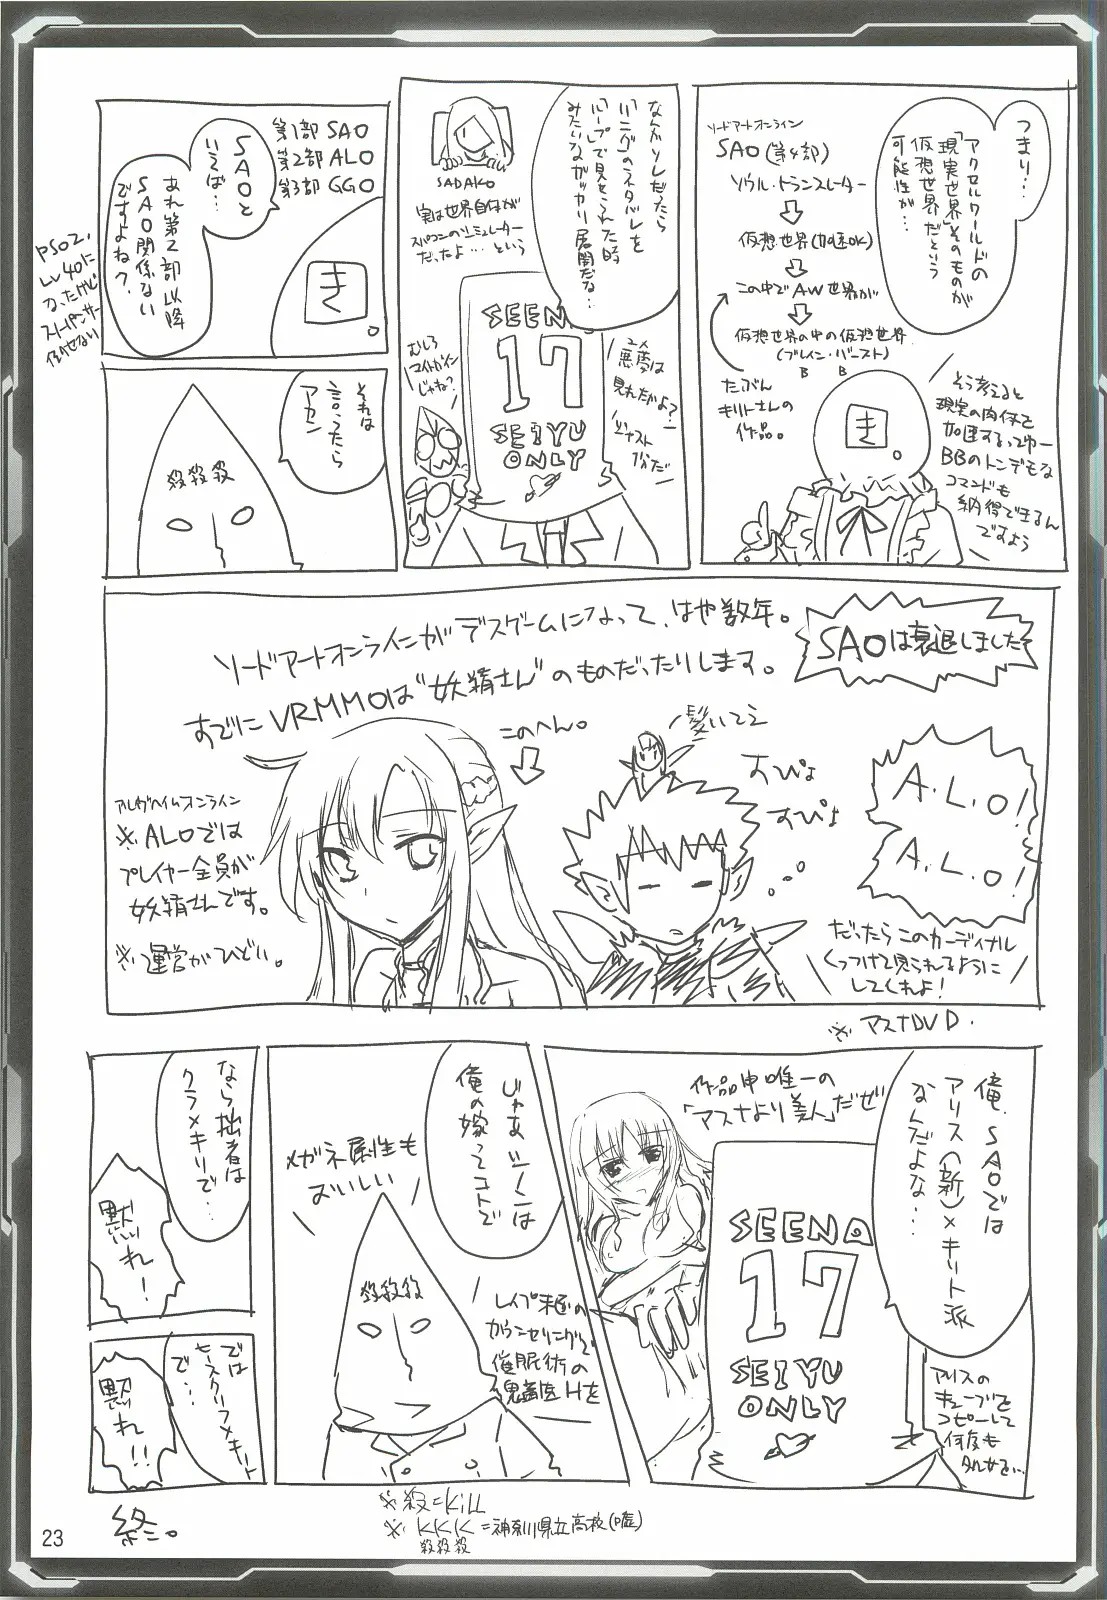 つまり…
アクセルワールドの
「現実世界」そのものが
仮想世界だという
可能性が…
ソードアートオンライン
SAO(第4部)
ソウル・トランスレーター
仮想世界(加速OK)
この中でAW世界が
仮想世界の中の仮想世界
(ブレイン・バースト)
B B
たぶん
キリトさんの
作品。
き。
そう考えると
現実の肉体を
加速するってゆー
BBのトンデモな
コマンドも
納得できるん
ですよう
なんかソレだったら
「リング」のネタバレを
「ループ」で見せられた時
みたいなガッカリ展開だな…
SADAKO
実は世界自体が
スパコンのシミュレーター
だったよ…という
SEENA
17
SEIYU
ONLY
悪夢は
見れたかよ?
むしろ
マイトガイン
じゃね?
第1部 SAO
第2部 ALO
第3部 GGO
SAOと
いえば…
あれ第2部以降
SAO関係ない
ですよね?
き。
PSO2、
Lv40に
なったけど
それは
言ったら
アカン
殺殺殺
SAOは衰退しました
ソードアートオンラインがデスゲームになって、はや数年。
すでにVRMMOは“妖精さん”のものだったりします。
このへん。
髪いてえ
すぴょ
すぴょ
A.L.O!
A.L.O!
だったらこのカーディナル
くっつけて見られるように
してくれよ!
アルヴヘイムオンライン
※ALOでは
プレイヤー全員が
妖精さんです。
※運営がひどい。
※アスナDVD.
俺、SAOでは
アリス(新)×キリト派
なんだよな…
作品中唯一の
「アスナより美人」だぜ
SEENA
17
SEIYU
ONLY
アリスの
キューブを
コピーして
何度も
じゃあシノンは
俺の嫁ってコトで
メガネ属性も
おいしい
殺殺殺
レイプ未遂の
カウンセリングで
催眠術の
鬼畜医Hを
なら拙者は
クライン×キリで…
黙れ!
では
ヒースクリフ×キリト
で…
黙れ!!
※KKK=神奈川県立高校(嘘)
殺殺殺
終。
23